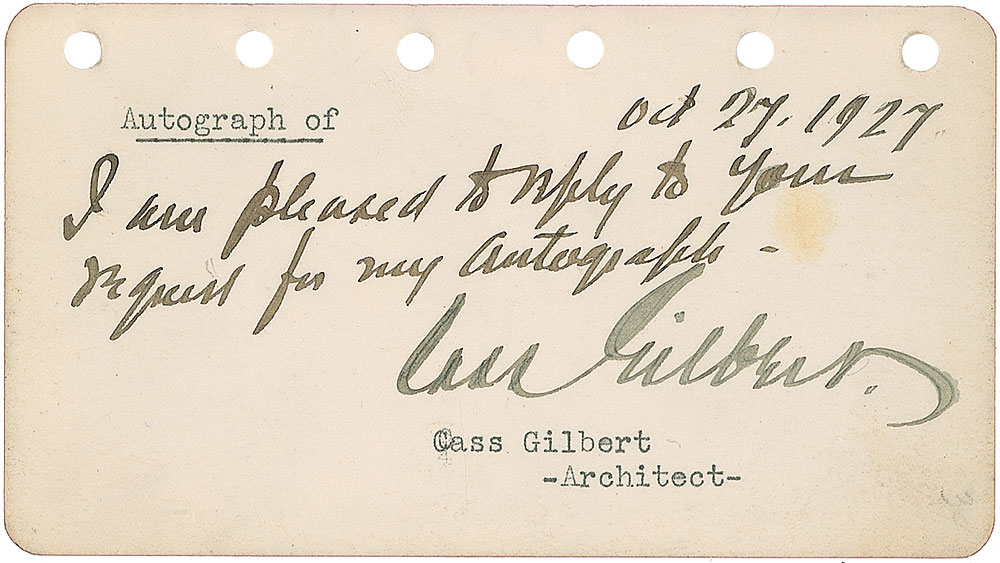 Autograph of
Oct 27. 1927.
I am pleased to reply to your
request for my autograph -
Cass Gilbert.
Cass Gilbert
-Architect-